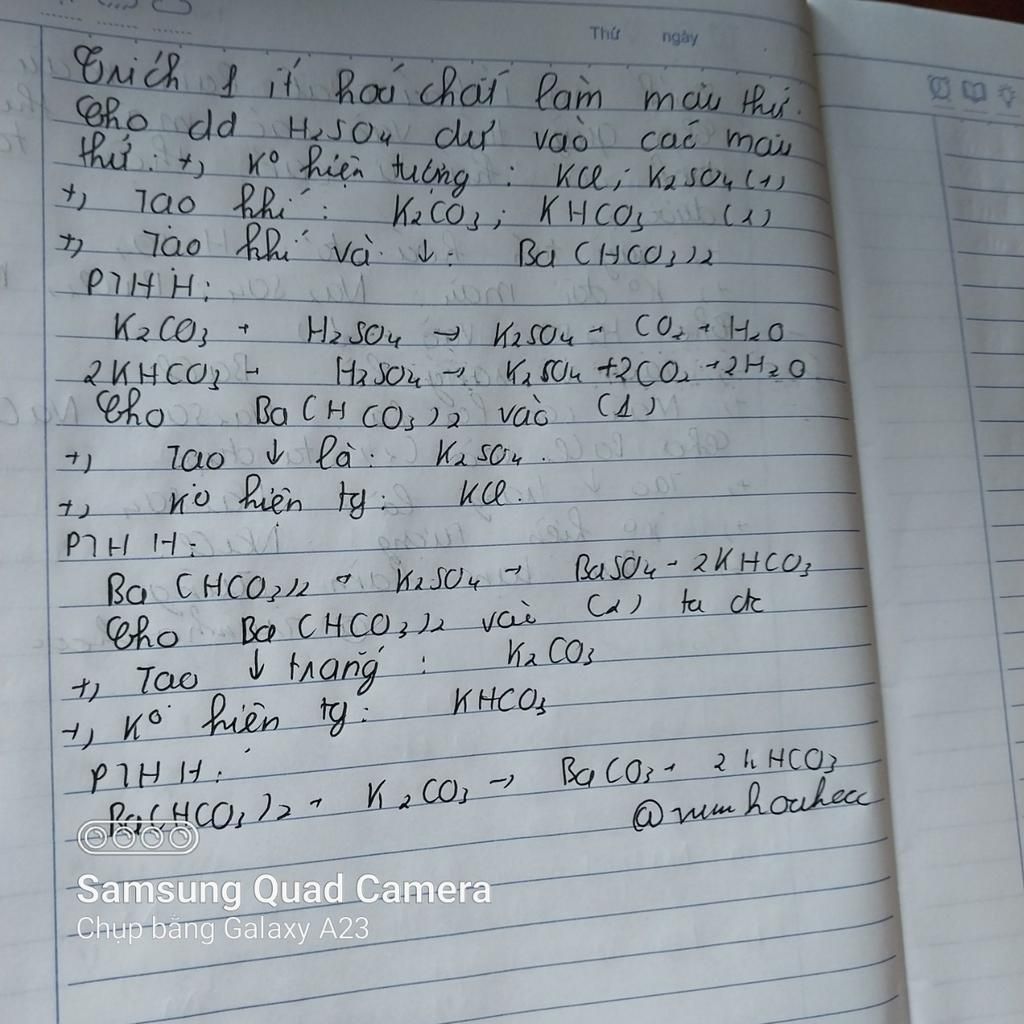 Thứ ngày
Trích 1 ít hoá chất làm mẫu thử.
Cho dd H2SO4 dư vào các mẫu
thử: +, Ko hiện tượng: KCl; K2SO4 (1)
+, Tạo khí: K2CO3; KHCO3 (2)
+, Tạo khí và ↓: Ba(HCO3)2
PTHH:
K2CO3 + H2SO4 → K2SO4 + CO2 + H2O
2KHCO3 + H2SO4 → K2SO4 +2CO2 +2H2O
Cho Ba(HCO3)2 vào (1)
+, Tạo ↓ là: K2SO4.
+, Ko hiện tg: KCl.
PTHH:
Ba(HCO3)2 + K2SO4 → BaSO4 + 2KHCO3
Cho Ba(HCO3)2 vào (2) ta đc
+, Tạo ↓ trắng: K2CO3
+, Ko hiện tg: KHCO3
PTHH:
Ba(HCO3)2 + K2CO3 → BaCO3 + 2KHCO3
Samsung Quad Camera
Chụp bằng Galaxy A23